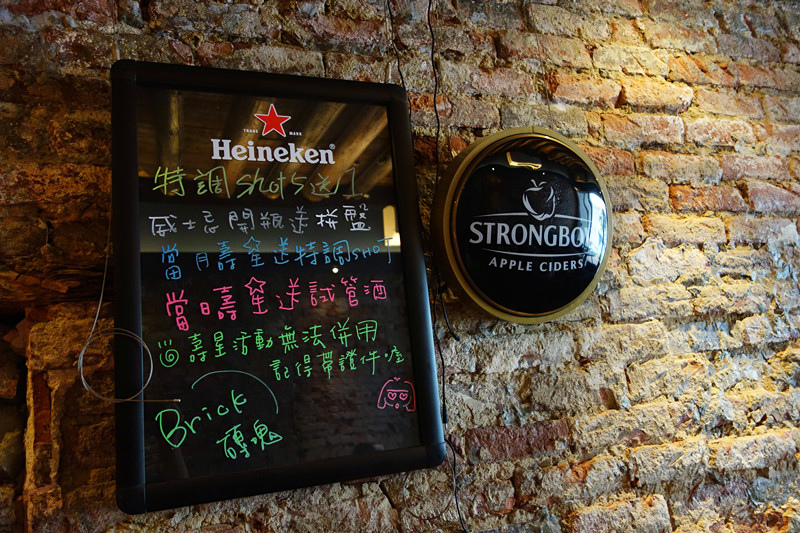 TRADE MARK
Heineken®
特調shot5送1
威士忌開瓶送拼盤
當月壽星送特調shot
當日壽星送試管酒
壽星活動無法併用
記得帶證件喔
Brick
磚塊
STRONGBOW
APPLE CIDERS